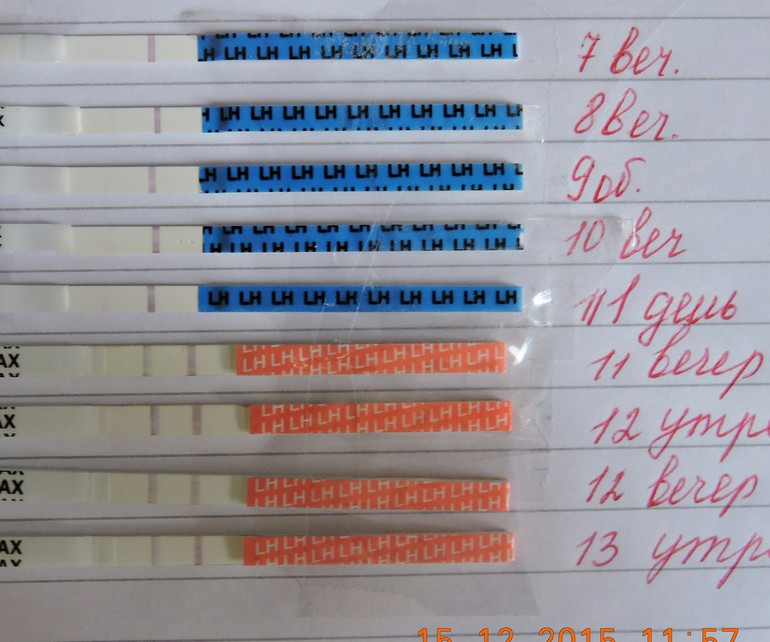 LH LH LH LH LH LH LH LH LH 7 веч.
LH LH LH LH LH LH LH LH LH 8 веч.
LH LH LH LH LH LH LH LH LH 9 об.
LH LH LH LH LH LH LH LH LH 10 веч
LH LH LH LH LH LH LH LH LH LH 11 день
AX LH LH LH LH LH LH LH LH LH 11 вечер
AX LH LH LH LH LH LH LH LH LH 12 утро
AX LH LH LH LH LH LH LH LH LH 12 вечер
AX LH LH LH LH LH LH LH LH LH 13
15.12.2015 11:57